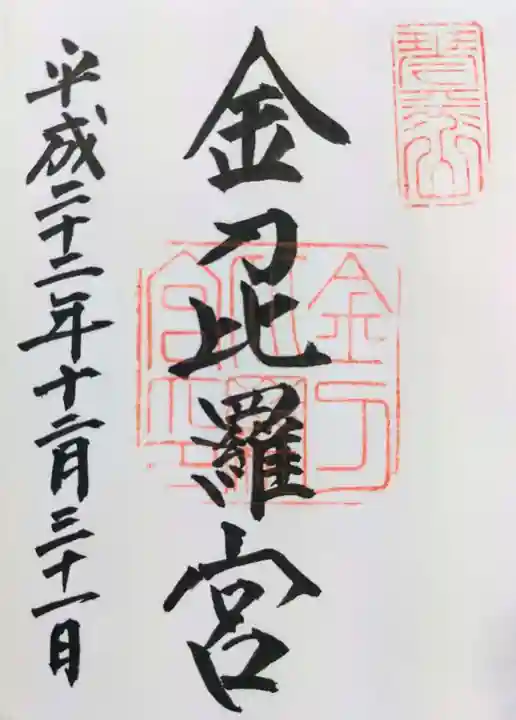 金刀比羅宮
金刀
比羅
宮印
平成二十二年十二月三十一日